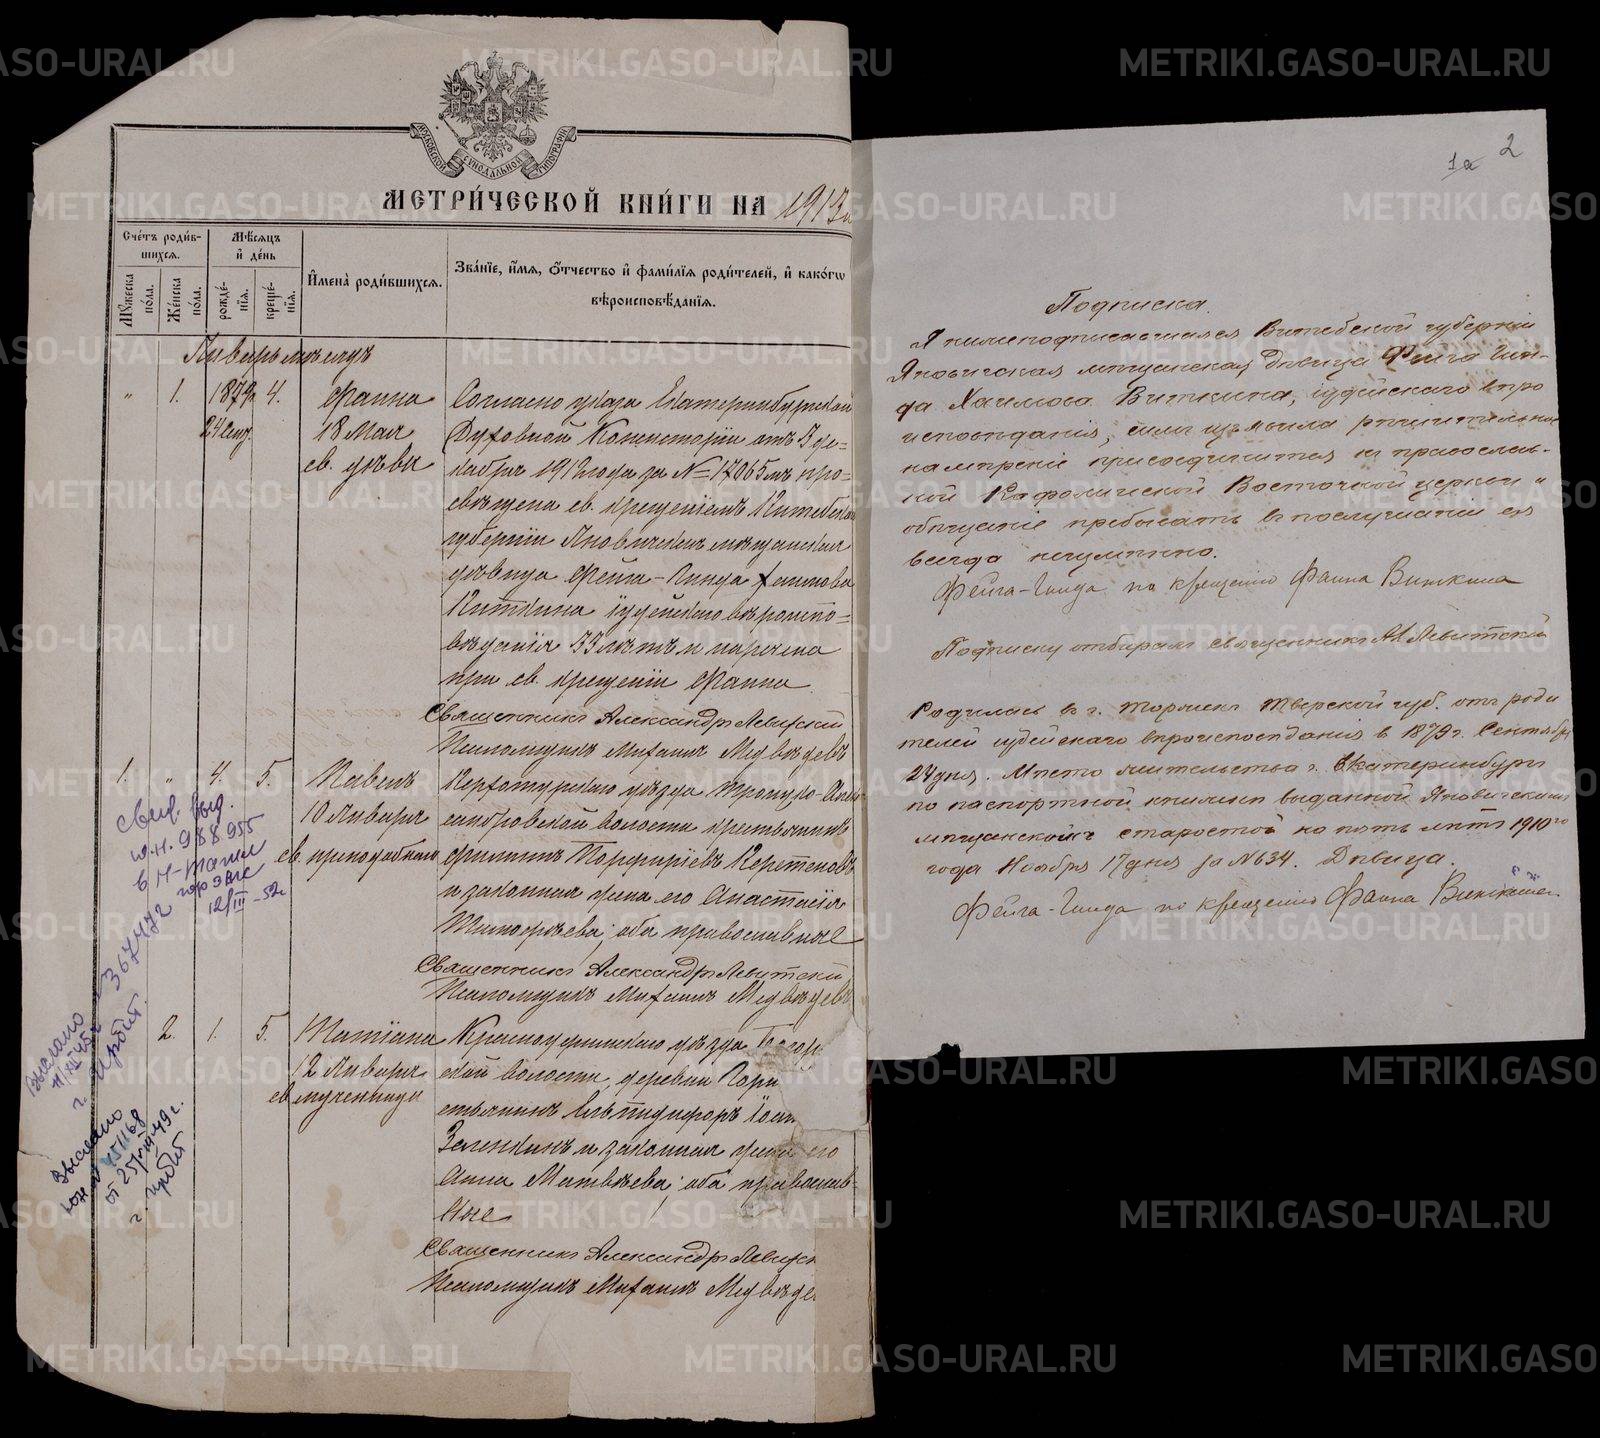 МОСКОВСКОЙ СѴНОДАЛЬНОЙ ТИПОГРАФІИ
МЕТРИ́ЧЕСКОЙ КНИ́ГИ НА 1913
Сче́тъ роди́в-
шихсѧ.
Мѣ́сѧцъ
и҆ де́нь
И҆мена̀ роди́вшихсѧ.
Зва́нїе, и҆́мѧ, ѻ҆́тчество и҆ фами́лїѧ роди́телей, и҆ како́гѡ
вѣроисповѣ́данїѧ.
Мꙋ́жеска
по́ла.
Же́нска
по́ла.
рожде́-
нїѧ.
креще́-
нїѧ.
Январь мѣсяцъ
" 1. 1879 4. Фаина
24 Сент. 18 Мая
св. дѣвы
Согласно указа Екатеринбургской
Духовной Консисторіи отъ 3 де=
кабря 1912 года за № 17065мъ про=
свѣщена св. крещеніемъ Витебской
губерніи Яновичская мѣщанская
дѣвица Фейга-Гинда Хаимова
Виткина іудейскаго вѣроиспо=
вѣданія 33 лѣтъ и наречена
при св. крещеніи Фаина
Священникъ Александръ Левитскій
Псаломщикъ Михаилъ Медвѣдевъ
1. " 4. 5. Павелъ
10 Января
св. преподобнаго
Верхотурскаго уѣзда Топорко-Алек
сандровской волости крестьянинъ
Филиппъ Порфиріевъ Коретеновъ
и законная жена его Анастасія
Тимофѣева; оба православные
Священникъ Александръ Левитскій
Псаломщикъ Михаилъ Медвѣдевъ
2. 1. 5. Татіана
12 Января
св. мученицы
Красноуфимскаго уѣзда Богор
ской волости, деревни Гори
стьянинъ Елпидифоръ Іоан
Зеленкинъ и законная жена его
Анна Матвѣева; оба православ-
ные
Священникъ Александръ Левитск
Псаломщикъ Михаилъ Медвѣде
свид. выд.
ю.н. 988955
в Н-Тагил
гор ЗАГС
12/III-52г
367472
Выслано
г. Ирбит.
Выслано
юж № 451168
от 25/VIII 49 г.
г. Ирбит
1а 2
Подписка.
Я нижеподписавшаяся Витебской губерніи
Яновичская мѣщанская дѣвица Фейга Гин-
да Хаимова Виткина, іудейскаго вѣро
исповѣданія, симъ изъявила рѣшительное
намѣреніе присоединиться къ православ-
ной Кафолической Восточной церкви и
обѣщаніе пребывать въ послушаніи ея
всегда неизмѣнно.
Фейга-Гинда по крещенію Фаина Виткина
Подписку отбиралъ священникъ Ал. Левитскій
Родилась въ г. Торжкѣ Тверской губ. отъ роди
телей іудейскаго вѣроисповѣданія въ 1879 г. Сентября
24 дня. Мѣсто жительства г. Екатеринбургъ
по паспортной книжкѣ выданной Яновичскимъ
мѣщанскимъ старостой на пять лѣтъ 1910го
года Ноября 17 дня за №634. Дѣвица.
Фейга-Гинда по крещенію Фаина Виткина
METRIKI.GASO-URAL.RU